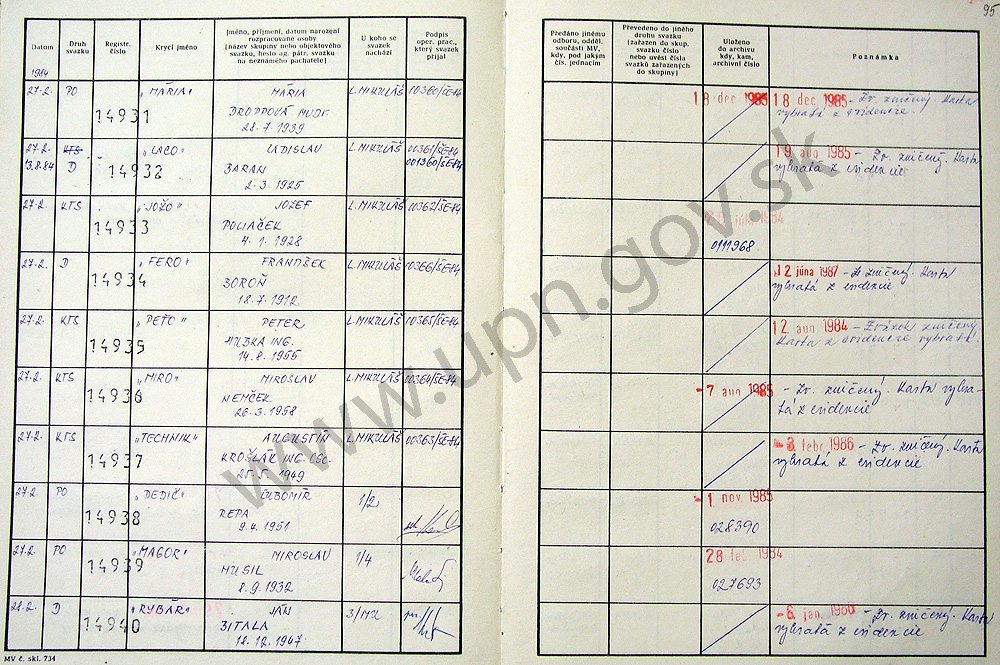 95
Datum
Druh svazku
Registr. číslo
Krycí jméno
Jméno, příjmení, datum narození
rozpracované osoby
(název skupiny nebo objektového
svazku, heslo ag. pátr. svazku
na neznámého pachatele)
U koho se
svazek
nachází
Podpis
oper. prac.,
který svazek
přijal
Předáno jinému
odboru, odděl.
součásti MV,
kdy, pod jakým
čís. jednacím
Převedeno do jiného
druhu svazku
(zařazen do skup.
svazku číslo
nebo uvést čísla
svazků zařazených
do skupiny)
Uloženo
do archivu
kdy, kam,
archivní číslo
Poznámka
1984
27.2. PO "MÁRIA" MÁRIA L.MIKULÁŠ 00360/ŠE-84 18 dec 1985 18 dec 1985 - Zv. zničený. Karta
14931 DROPPOVÁ MUDr. vybratá z evidencie.
28.7.1939
27.2. KTS "LACO" LADISLAV L.MIKULÁŠ 00361/ŠE-84 19 aug 1985 - Zv. zničený. Karta
13.8.84 D 14932 BARAN 001360/ŠE-84 vybratá z evidencie
2.3.1925
27.2. KTS "JOŽO" JOZEF L.MIKULÁŠ 00362/ŠE-84
14933 POLIAČEK 0111968
4.1.1928
27.2. D "FERO" FRANTIŠEK L.MIKULÁŠ 00366/ŠE-84 12 júna 1987 - Zv. zničený. Karta
14934 BOROŇ vybratá z evidencie
18.7.1912
27.2. KTS "PEŤO" PETER L.MIKULÁŠ 00365/ŠE-84 12 aug 1984 - Zväzok zničený
14935 HUBKA ING. Karta z evidencie vybratá.
14.8.1955
27.2. KTS "MIRO" MIROSLAV L.MIKULÁŠ 00364/ŠE-84 -7 aug 1985 - Zv. zničený. Karta vybra-
14936 NEMČEK tá z evidencie
26.3.1958
27.2. KTS "TECHNIK" AUGUSTÍN L.MIKULÁŠ 00363/ŠE-84 -3 febr 1986 - Zv. zničený. Karta
14937 KROŠLÁK ING. CSC. vybratá z evidencie
1949
27.2. PO "DEDIČ" ĽUBOMÍR 1/2 -1 nov. 1985
14938 REPA 028390
9.4.1951
27.2. PO "MAGOR" MIROSLAV 1/4 28 feb 1984
14939 MUSIL 027693
8.9.1932
28.2. D "RYBÁR" JÁN -6 jan. - Zv. zničený. Karta
14940 BITALA vybratá z evidencie
18.12.1947
MV č. skl. 734
www.upn.gov.sk